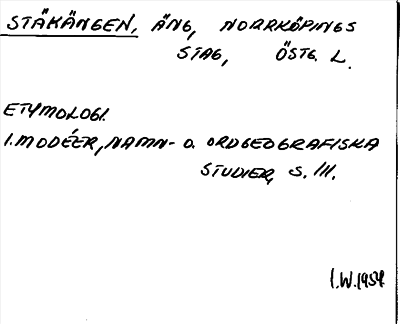 STÄKÄNGEN, ÄNG, NORRKÖPINGS
STAG, ÖSTG. L.
ETYMOLOGI.
I. MODÉER, NAMN- O. ORDGEOGRAFISKA
STUDIER, S. 111.
I.W. 1954